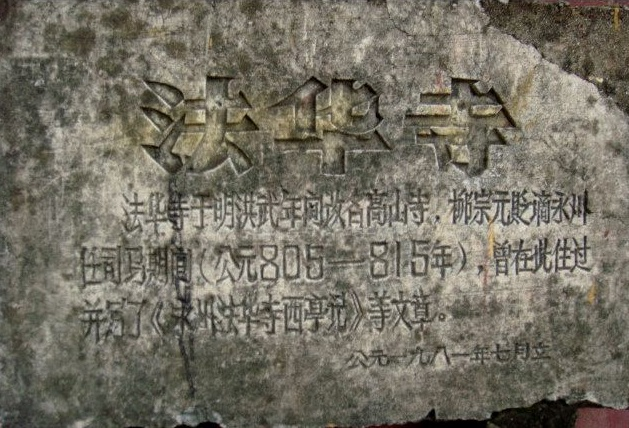 法华寺
法华寺于明洪武年间改名高山寺，柳宗元贬谪永州
任司马期间（公元805—815年），曾在此住过
并写了《永州法华寺西亭记》等文章。
公元一九八一年七月立